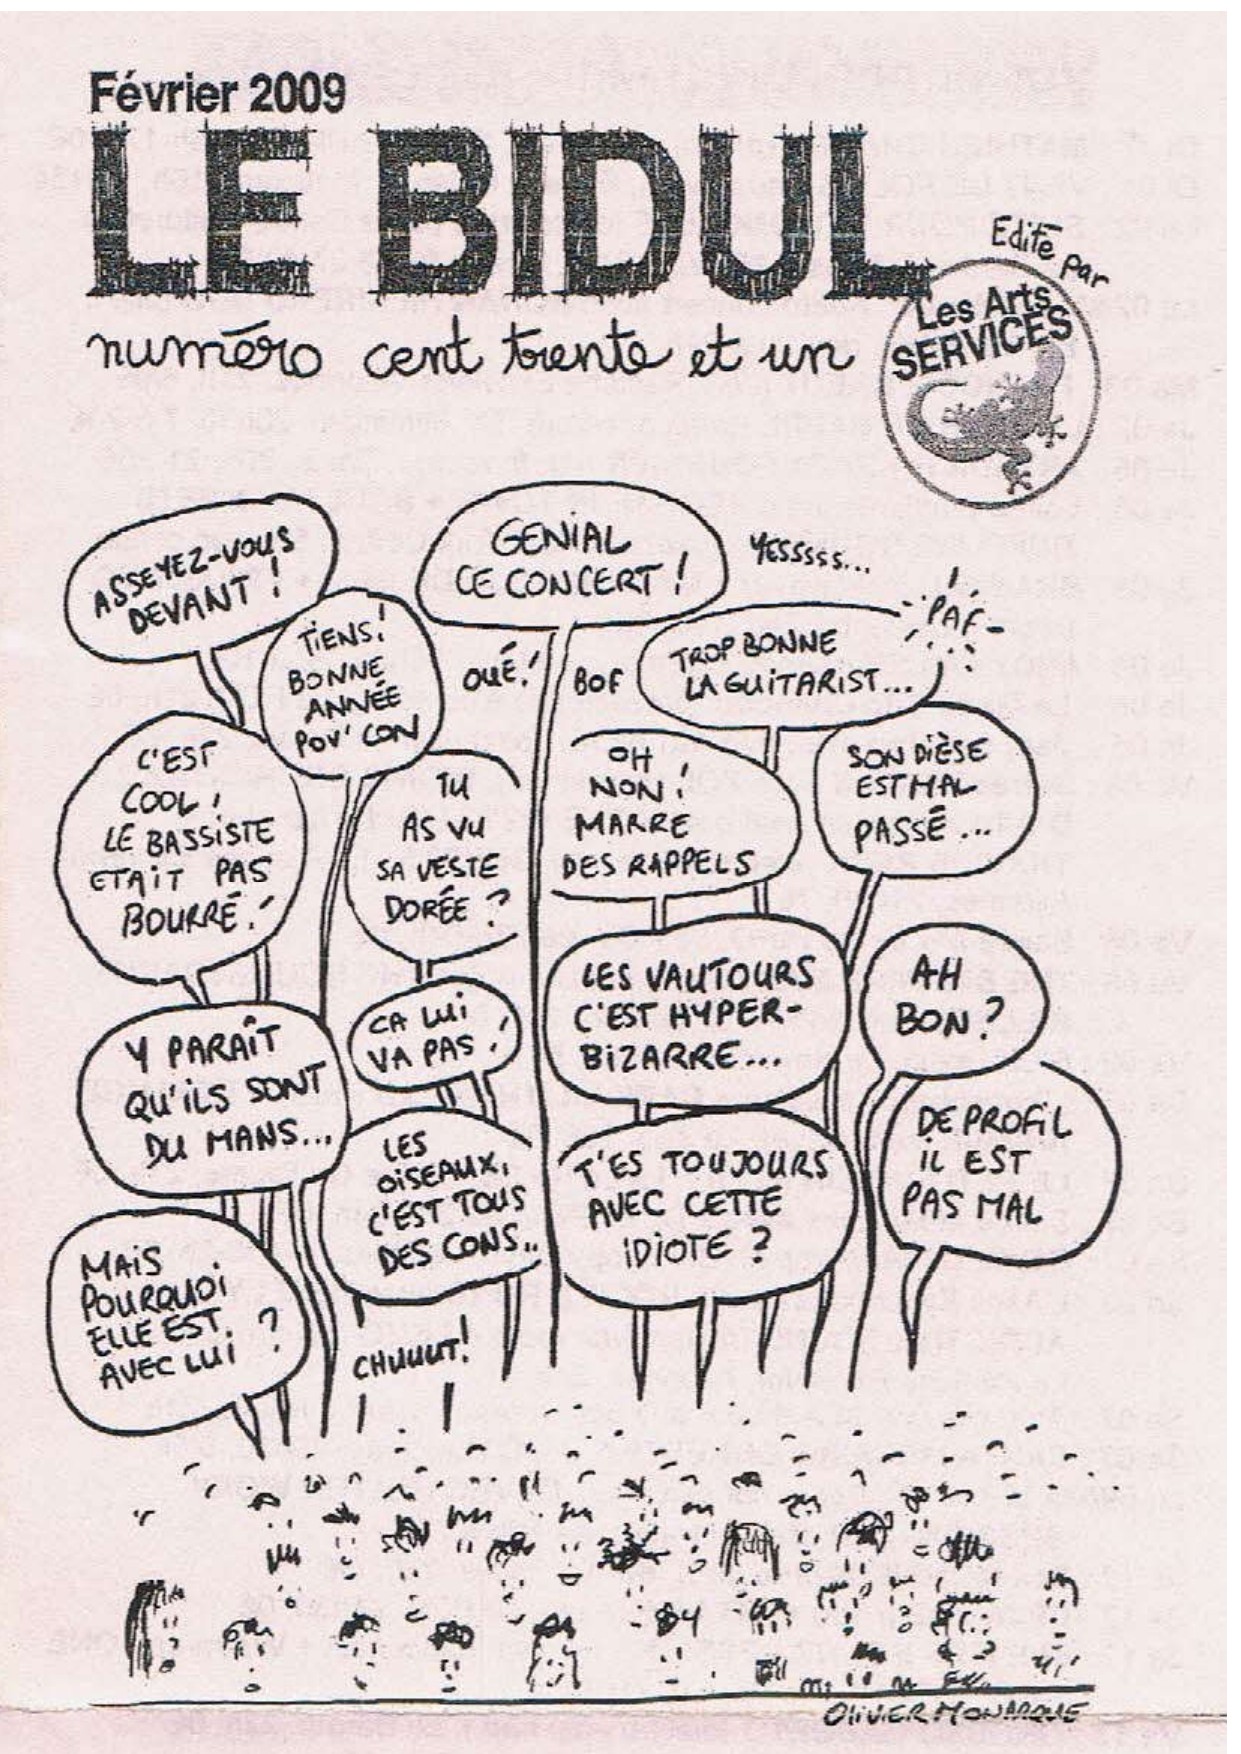 Février 2009
LE BIDUL
Edité par
Les Arts
SERVICES
numéro cent trente et un
ASSEYEZ-VOUS
DEVANT !
GENIAL
CE CONCERT !
YESSSSS...
TIENS!
BONNE
ANNÉE
POV' CON
OUÉ!
BOF
TROP BONNE
LA GUITARIST...
PAF
C'EST
COOL !
LE BASSISTE
ETAIT PAS
BOURRÉ !
TU
AS VU
SA VESTE
DORÉE ?
OH
NON !
MARRE
DES RAPPELS
SON DIÈSE
EST MAL
PASSÉ ...
Y PARAÎT
QU'ILS SONT
DU MANS...
CA LUI
VA PAS !
LES VAUTOURS
C'EST HYPER-
BIZARRE...
AH
BON ?
LES
OISEAUX,
C'EST TOUS
DES CONS..
T'ES TOUJOURS
AVEC CETTE
IDIOTE ?
DE PROFIL
IL EST
PAS MAL
MAIS
POURQUOI
ELLE EST
AVEC LUI ?
CHUUUT!
OLIVIER MONARQUE